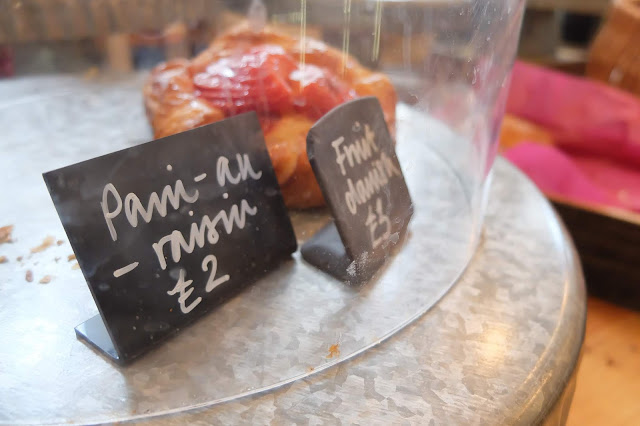 Pain-au
-raisin
£2
Fruit
danish
£3